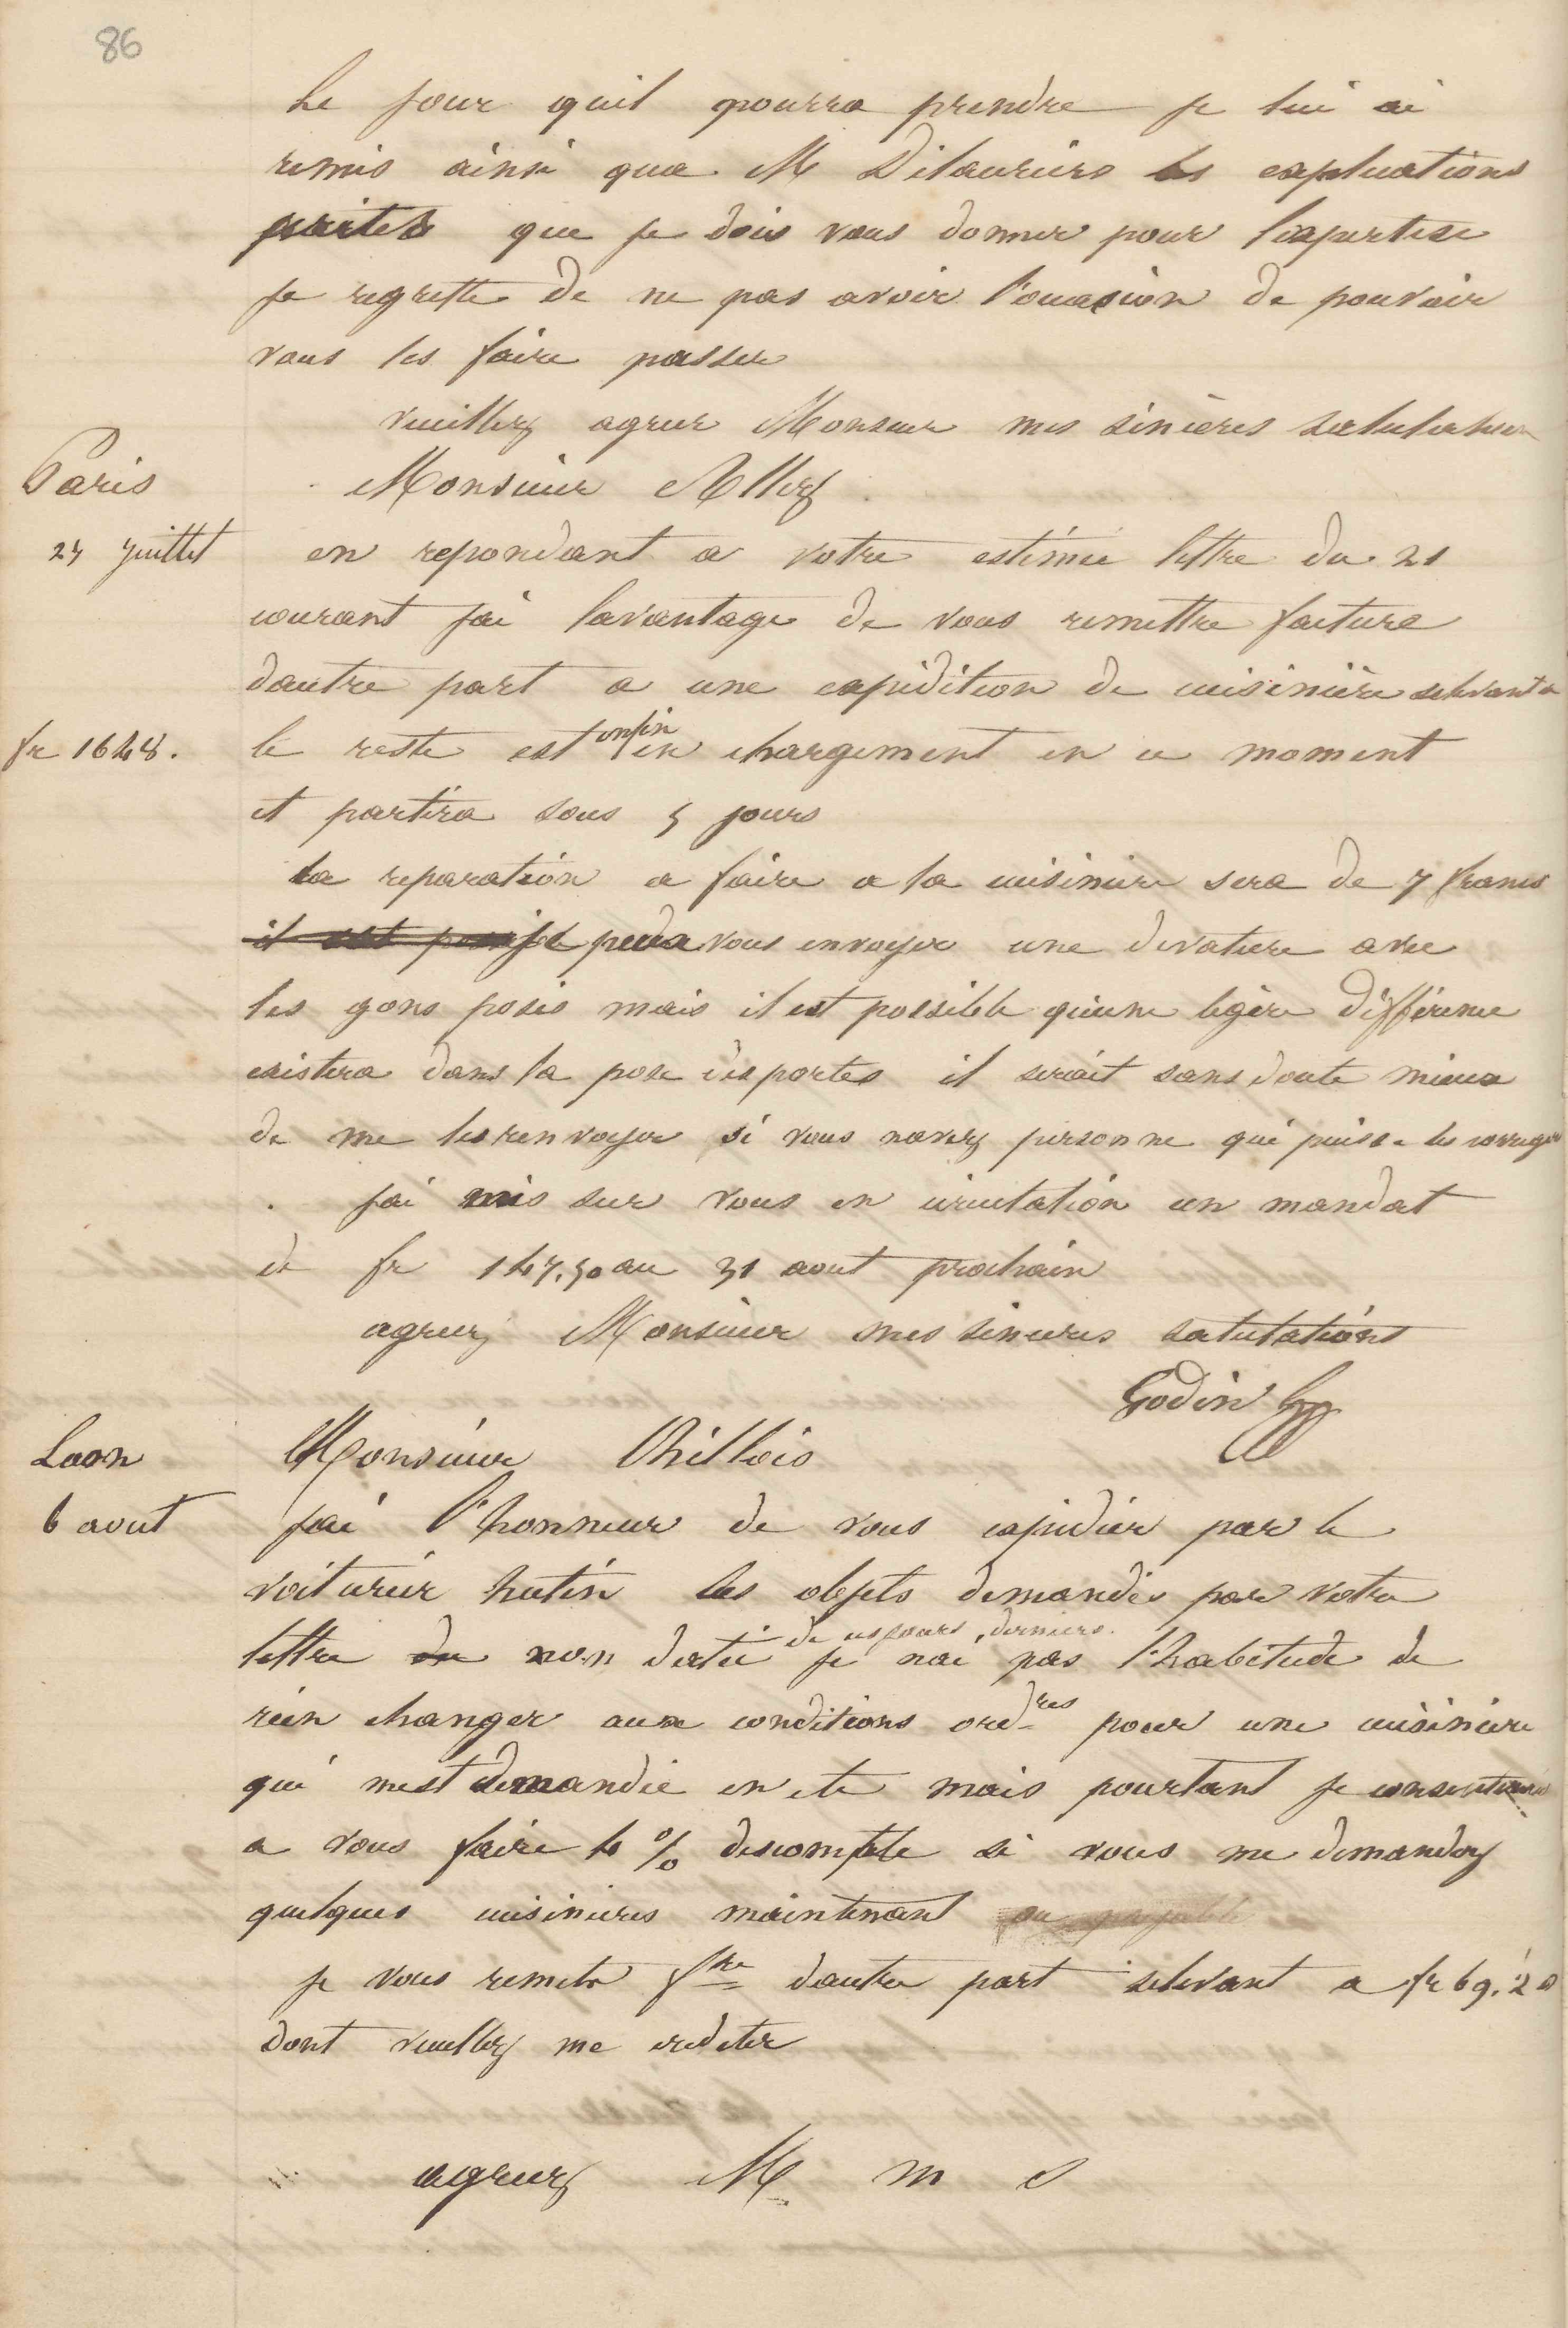 86
le jour quil pourra prendre je lui ai
remis ainsi qua M Delauriers les explications
ecrites que je dois vous donner pour lexpertise
je regrette de ne pas avoir l'ouasion de pouvoir
vous les faire passer
veuillez agreer Monsieur mes sincères salutations
Paris Monsieur Allez
24 juillet en repondant a votre estimée lettre du 21
courant jai lavantage de vous remettre facture
dautre part a une expédition de cuisinière selevant a
fr 1648. le reste est enfin en chargement en ce moment
et partira sous 5 jours
La reparation a faire a la cuisinière sera de 7 francs
il est je peux vous envoyer une devature avec
les gons posés mais il est possible qu'une legère différence
existera dans la pose des portes il serait sans doute mieux
de me les renvoyer si vous navez personne qui puisse les corriger
jai mis sur vous en circulation un mandat
de fr 147,50 au 31 aout prochain
agreez Monsieur mes sinceres salutations
Godin
Laon Monsieur Chillois
6 aout jai l'honneur de vous expédier par le
voiturier hutin les objets demandés par votre
lettre du non datée de ces jours derniers. je nai pas l'habitude de
rien changer aux conditions ordres pour une cuisinière
qui mest demandée en ete mais pourtant je consentirais
a vous faire 4 % descompte si vous me demandez
quelques cuisinières maintenant
je vous remets fre dautre part selevant a fr 69.20
dont veuillez me crediter
agreez M m s